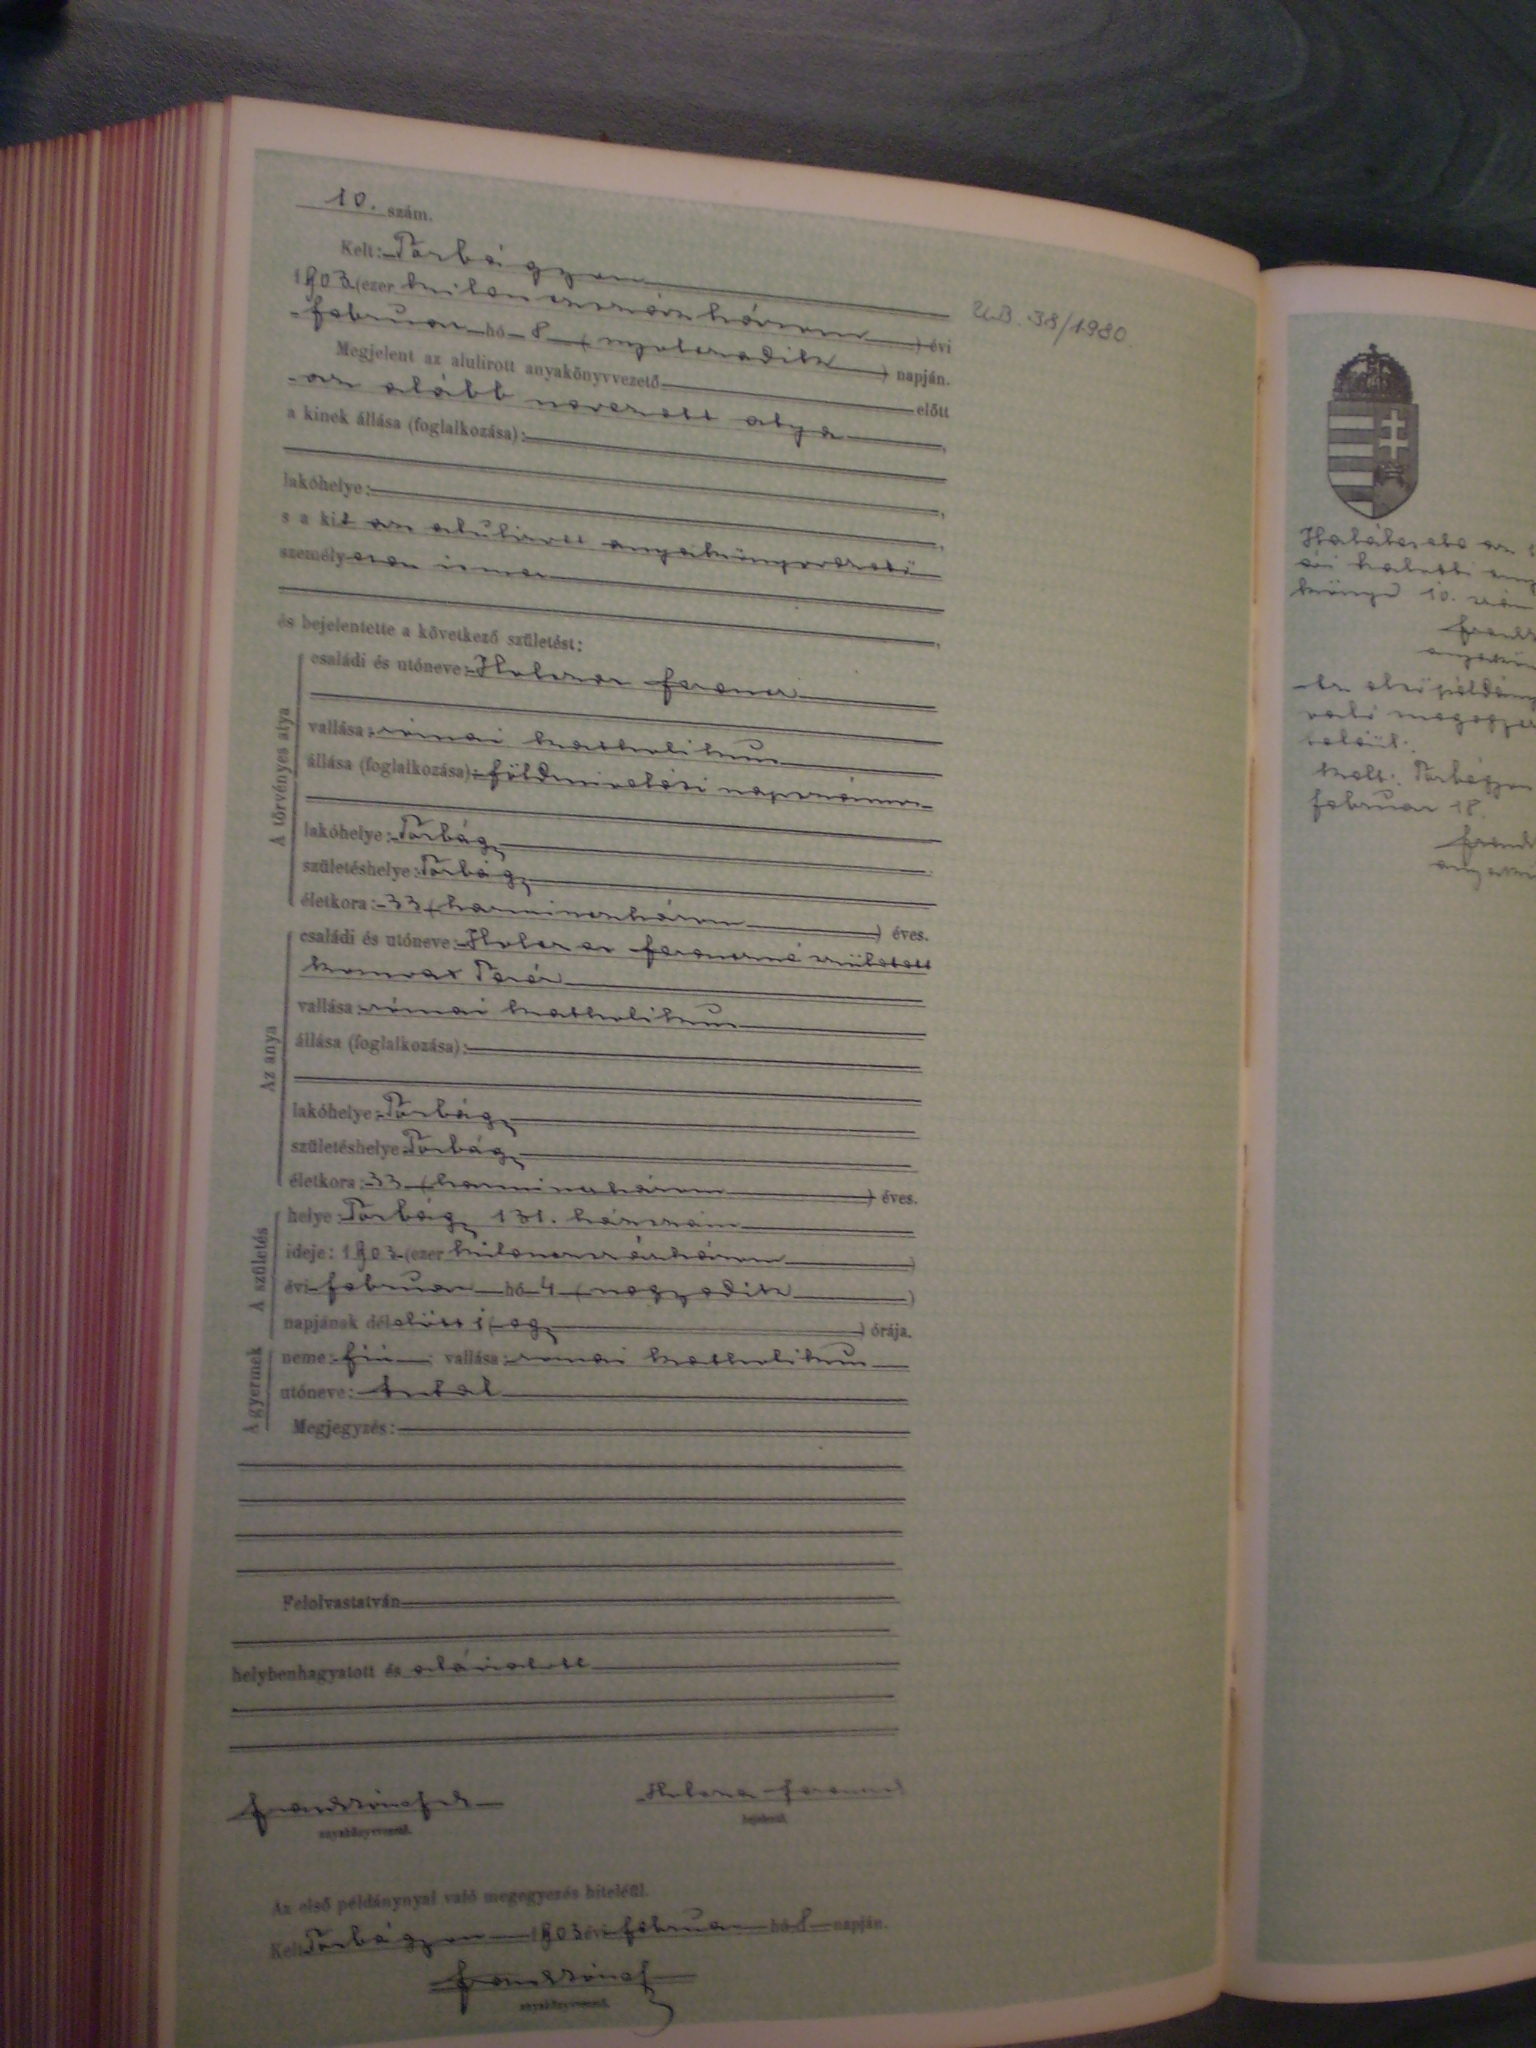 10. szám.
Kelt: Torbágyon
1903 (ezer kilenczszázhárom) évi
U.B. 38/1980.
február hó 8 (nyolczadik) napján.
Megjelent az alulirott anyakönyvvezető előtt
az alább nevezett atya,
a kinek állása (foglalkozása):
lakóhelye:
s a kit az alulirott anyakönyvvezető
személyesen ismer
és bejelentette a következő születést:
A törvényes atya
családi és utóneve: Holczer Ferencz
vallása: római katholikus
állása (foglalkozása): földmivelési napszámos
lakóhelye: Torbágy
születéshelye: Torbágy
életkora: 33 (harminczhárom) éves.
Az anya
családi és utóneve: Holczer Ferenczné született
Teréz
vallása: római katholikus
állása (foglalkozása):
lakóhelye: Torbágy
születéshelye Torbágy
életkora: 33 (harminczhárom) éves.
A születés
helye: Torbágy 131. házszám
ideje: 1903 (ezer kilenczszázhárom)
évi február hó 4 (negyedik)
napjának délelőtt 1 (egy) órája.
A gyermek
neme: fiú vallása: római katholikus
utóneve: Antal
Megjegyzés:
Felolvastatván
helybenhagyatott és aláiratott
anyakönyvvezető.
Holczer Ferencz
bejelentő.
Az első példánynyal való megegyezés hiteléül.
Kelt Torbágyon 1903 évi február hó 8 napján.
anyakönyvvezető.
könyv 10. szám
Kelt: Torbágyon
február 18.